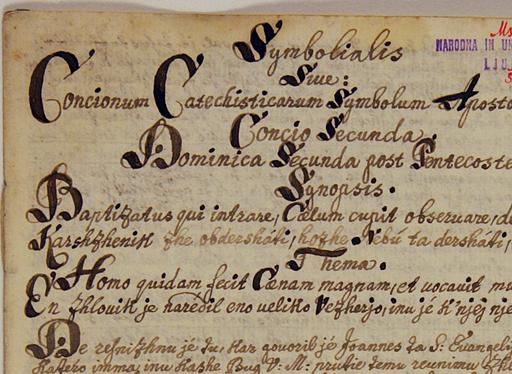 Ms
NARODNA IN UN
LJU
Symbolialis
Siue:
Concionum Catechisticarum Symbolum Aposto
Concio Secunda.
Dominica Secunda post Pentecoste
Synopsis.
Baptizatus qui intrare, Cælum cupit obseruare, d
Karshzhenik zhe obdersháti, hozhe Nebú ta dersháti,
Thema.
Homo quidam fecit Cænam magnam, et uocauit mu
En zhlovik je narédil eno veliko Vezherjo, inu jé k'njej nje
De resnizhnu jé tu, kar govoril jé Joannes ta S: Evangeli
inu Bug V: M: temu